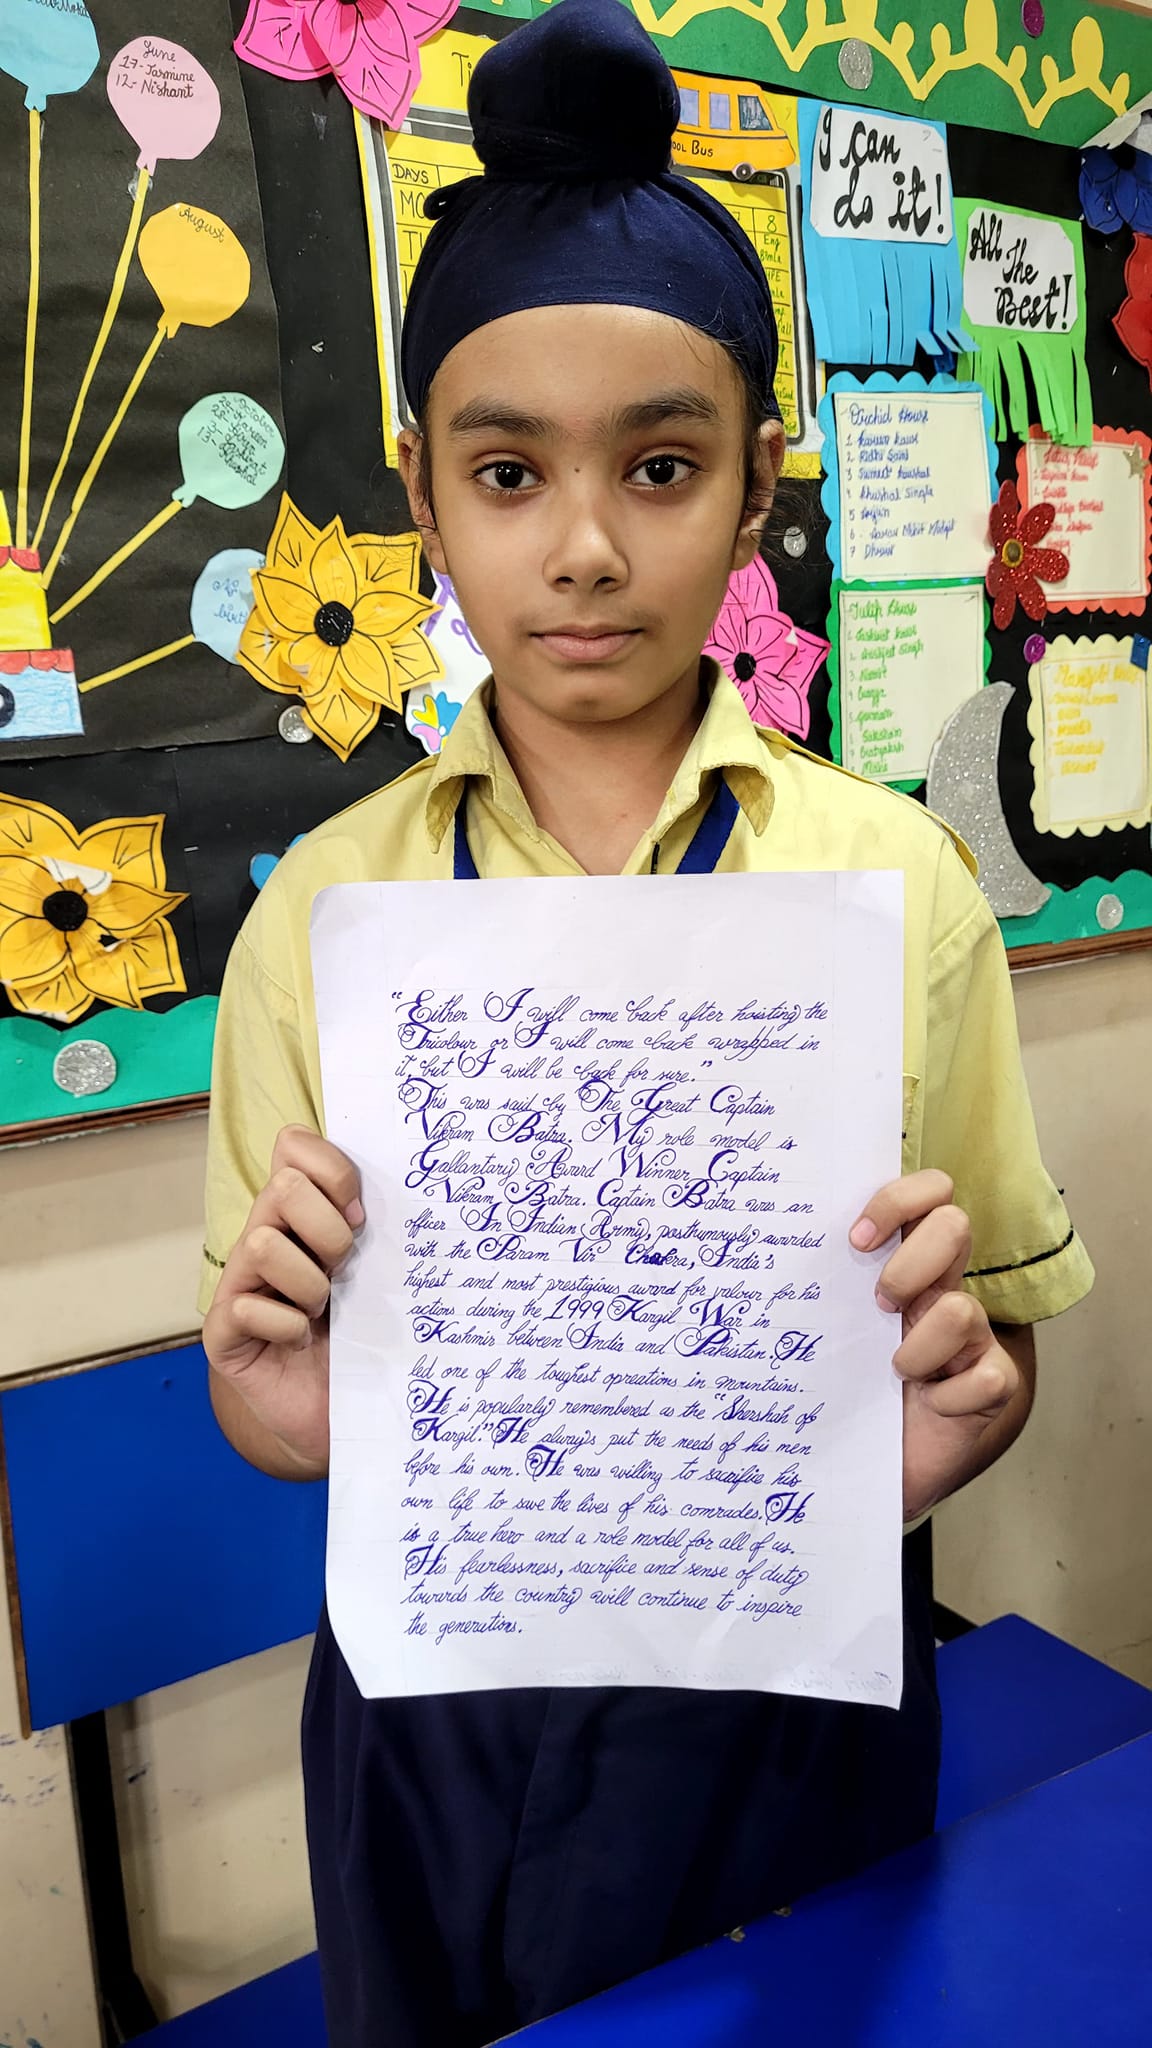 June
17- Jasmine
12- Nishant
August
October
DAYS
8
Eng
OOL BUS
I can
do it!
All
The
Best!
Orchid House
1
2 Ridhi Saini
3 Sumeet Kaushal
4 Khushal Singla
5 Arjun
6
7 Dhruv
Tulip House
"Either I will come back after hoisting the
Tricolour or I will come back wrapped in
it, but I will be back for sure."
This was said by The Great Captain
Vikram Batra. My role model is
Gallantary Award Winner Captain
Vikram Batra. Captain Batra was an
officer In Indian Army, posthumously awarded
with the Param Vir Chakra, India's
highest and most prestigious award for valour for his
actions during the 1999 Kargil War in
Kashmir between India and Pakistan. He
led one of the toughest opreations in mountains.
He is popularly remembered as the "Shershah of
Kargil." He always put the needs of his men
before his own. He was willing to sacrifice his
own life to save the lives of his comrades. He
is a true hero and a role model for all of us.
His fearlessness, sacrifice and sense of duty
towards the country will continue to inspire
the generations.